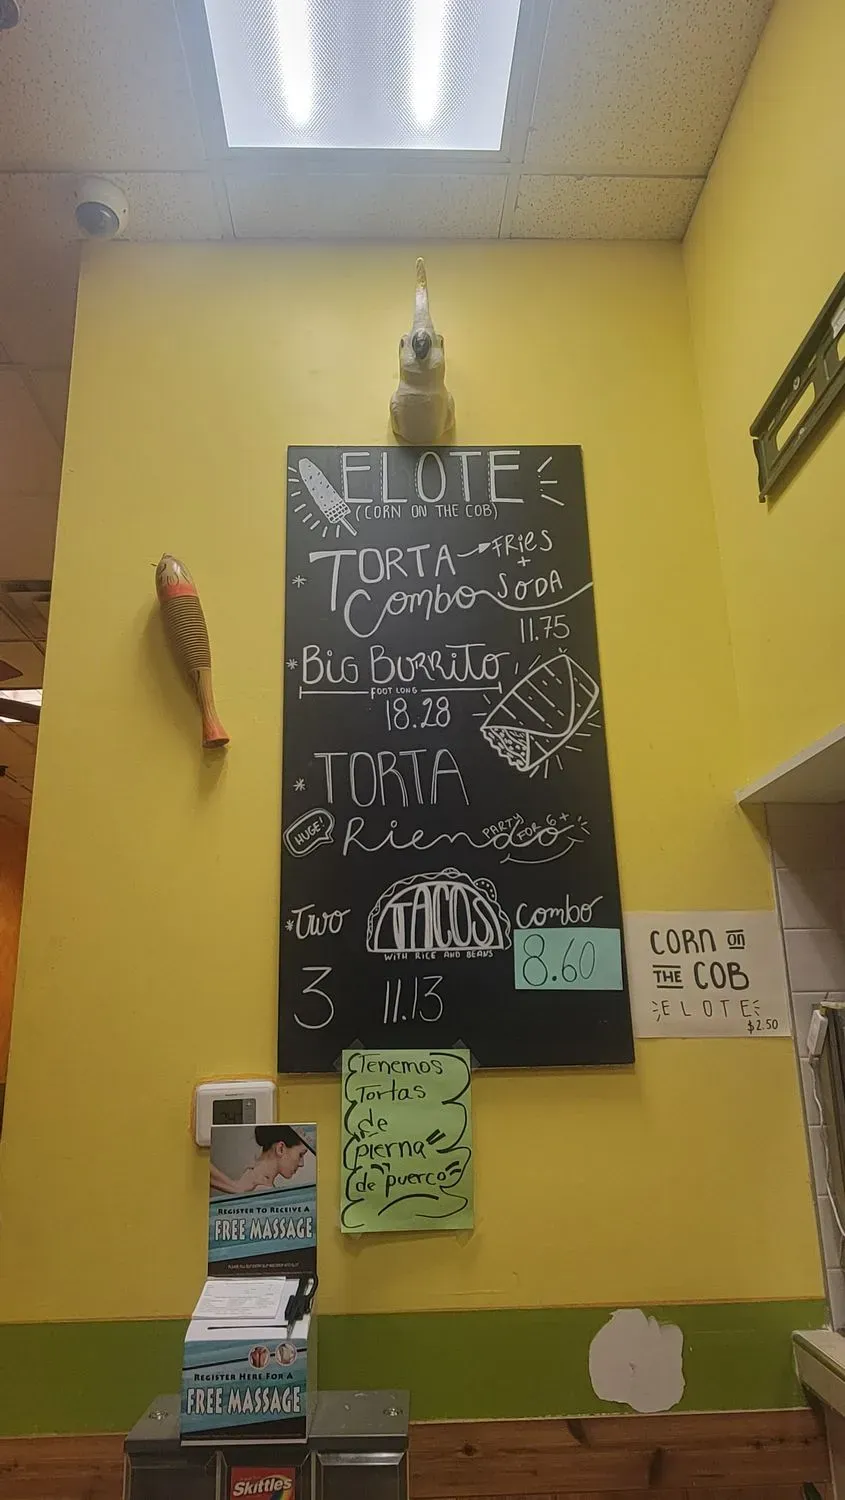 ELOTE
(CORN ON THE COB)
* TORTA → FRIES
+
Combo SODA
11.75
* BIG BURRITO
FOOT LONG
18.28
* TORTA
HUGE! Riendo PARTY FOR 6+
* Two TACOS Combo
WITH RICE AND BEANS
8.60
3 11.13
CORN ON
THE COB
ELOTE
$2.50
Tenemos
Tortas
de
"pierna"
de "puerco"
REGISTER TO RECEIVE A
FREE MASSAGE
REGISTER HERE FOR A
FREE MASSAGE
Skittles